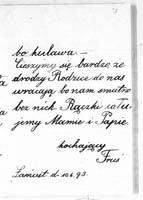 bo kulawa –
Cieszymy się bardzo, że
drodzy Rodzice do nas
wracają bo nam smutno
bez nich. Rączki cału-
jemy Mamie i Papie
kochający
Łańcut d. 10 6. 93.